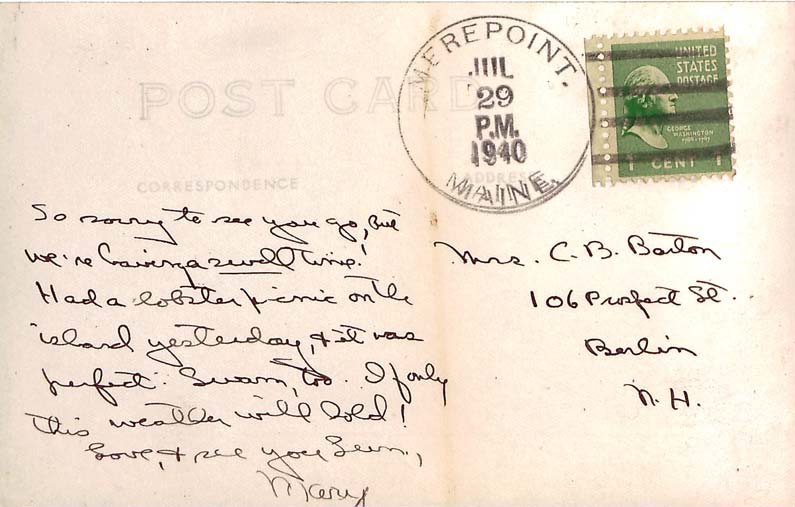 POST CARD
CORRESPONDENCE
ADDRESS
MEREPOINT.
JUL
29
P.M.
1940
MAINE.
UNITED
STATES
POSTAGE
GEORGE
WASHINGTON
1789-1797
1 CENT 1
So sorry to see you go, but
we're having a swell time!
Had a lobster picnic on the
island yesterday, & it was
perfect. Swam, too. If only
this weather will hold!
Love, & see you soon,
Mary
Mrs. C. B. Barton
106 Prospect St.
Berlin
N. H.